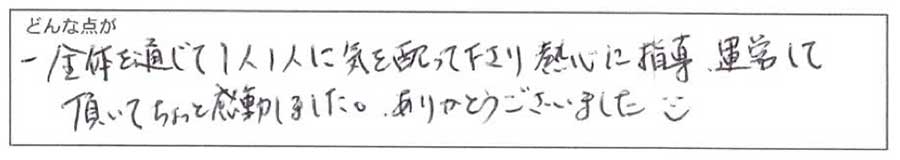 どんな点が
ー全体を通じて1人1人に気を配って下さり熱心に指導、運営して
頂いてちょっと感動しました。ありがとうございました